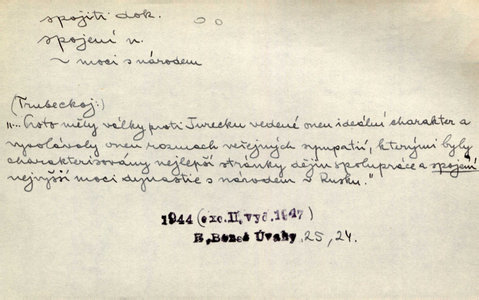 spojiti dok.
spojení n.
~ moci s národem
(Trubeckoj:)
"... Proto měly války proti Turecku vedené onen ideální charakter a
vyvolávaly onen rozmach veřejných sympatií, kterými byly
charakterisovány nejlepší stránky dějin spolupráce a spojení
nejvyšší moci dynastie s národem v Rusku."
1944 (exc.II, vyd.1947)
E. Beneš Úvahy, 25, 24.